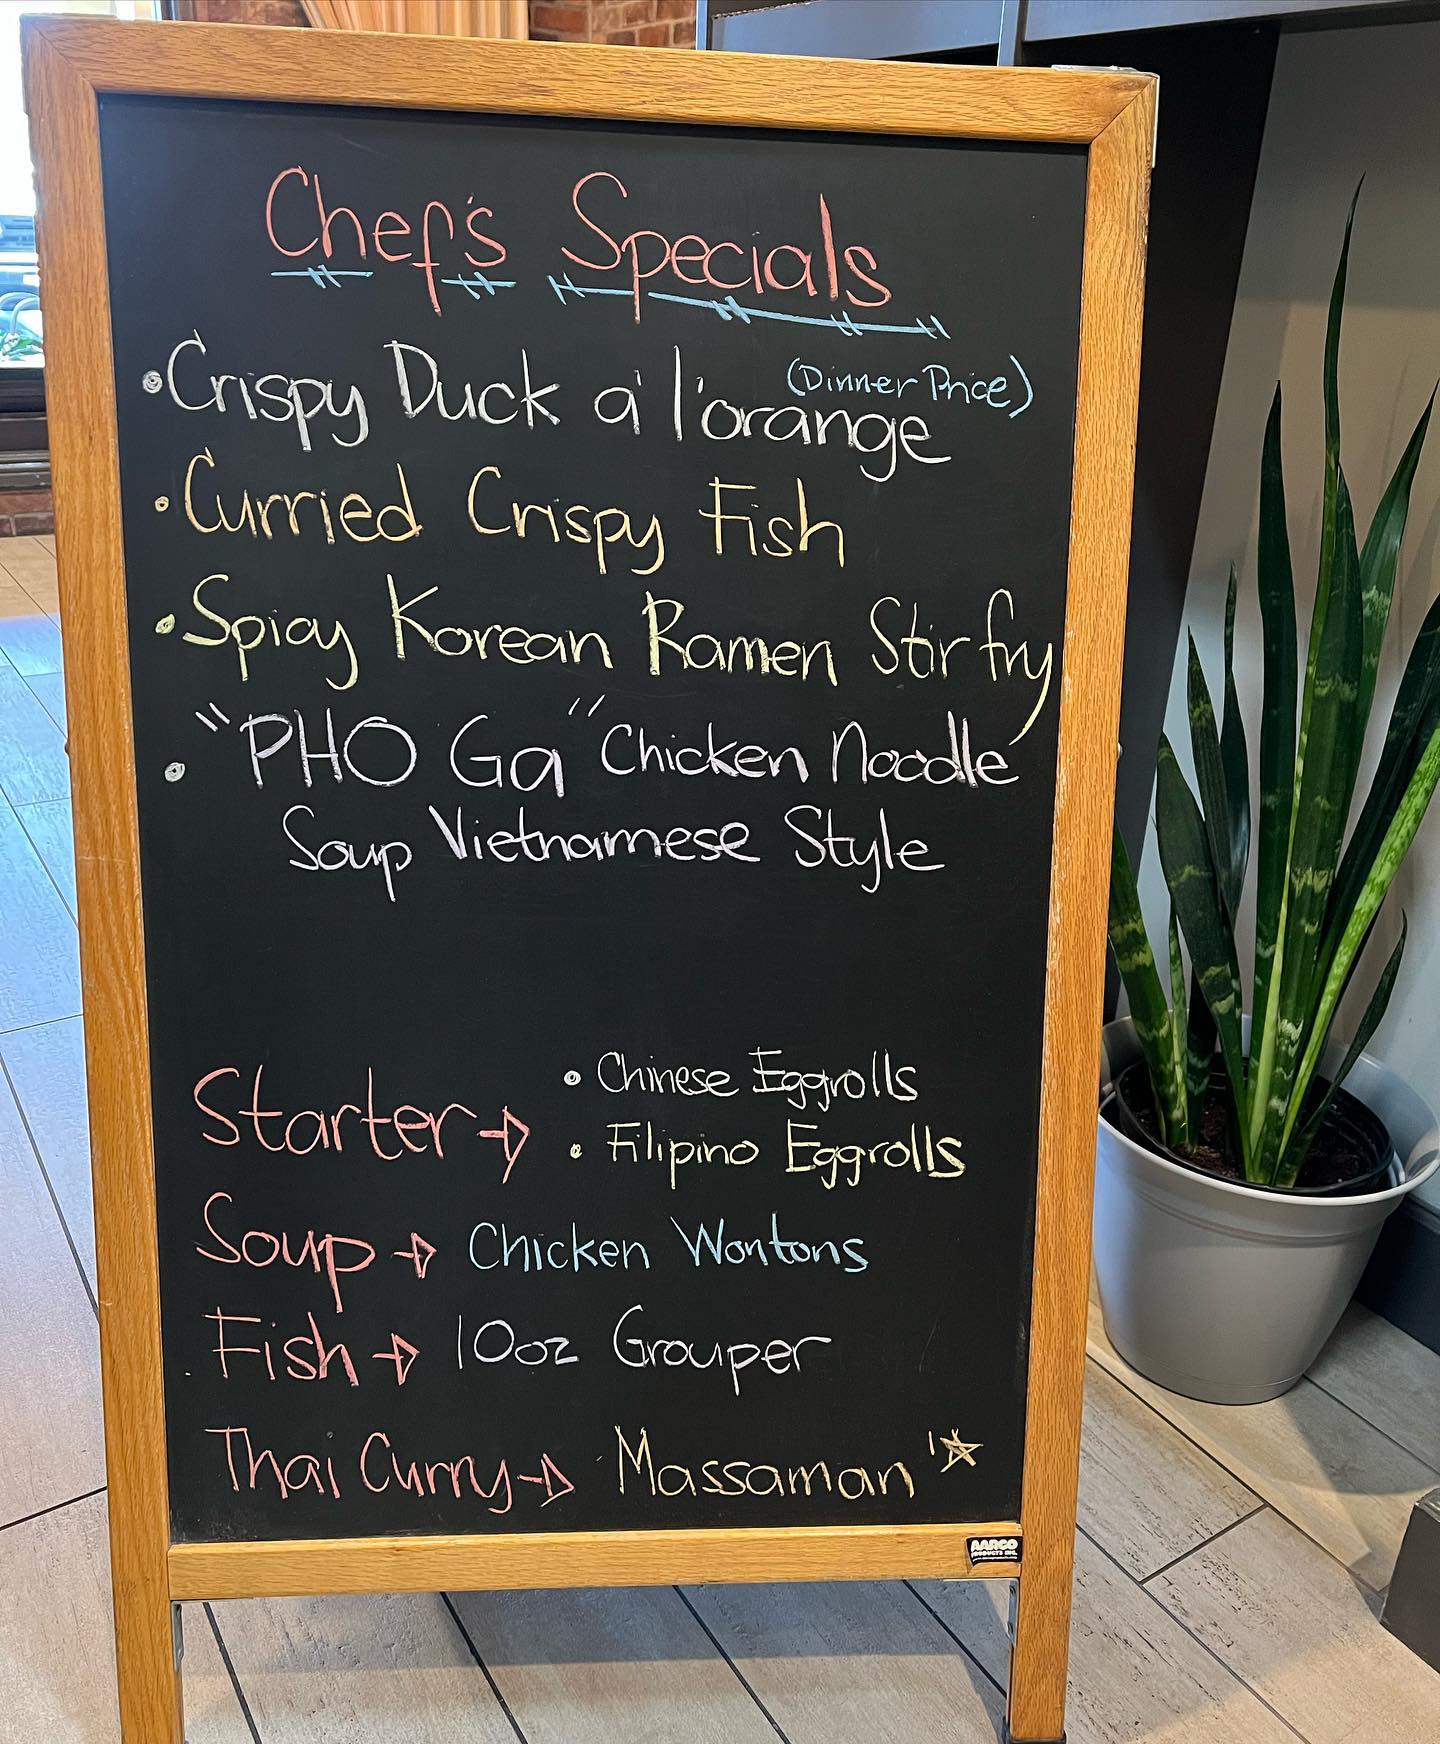 Chef's Specials
• Crispy Duck a' l'orange (Dinner Price)
• Curried Crispy Fish
• Spicy Korean Ramen Stir fry
• "PHO Ga" Chicken Noodle
Soup Vietnamese Style
Starter → • Chinese Eggrolls
• Filipino Eggrolls
Soup → Chicken Wontons
Fish → 10oz Grouper
Thai Curry → Massaman
AARCO
PRODUCTS INC.